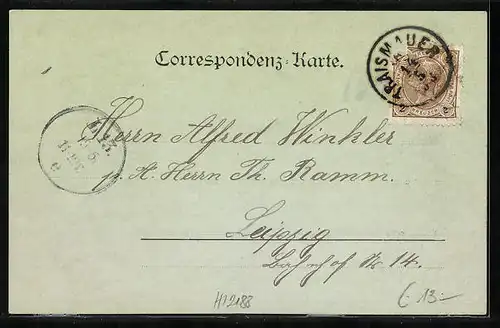 Correspondenz-Karte.
TRAISMAUER
Herrn Alfred Winkler
p. A. Herrn Th. Ramm.
Leipzig
Bahnhof Nr 14.
H12188
€ 13.-